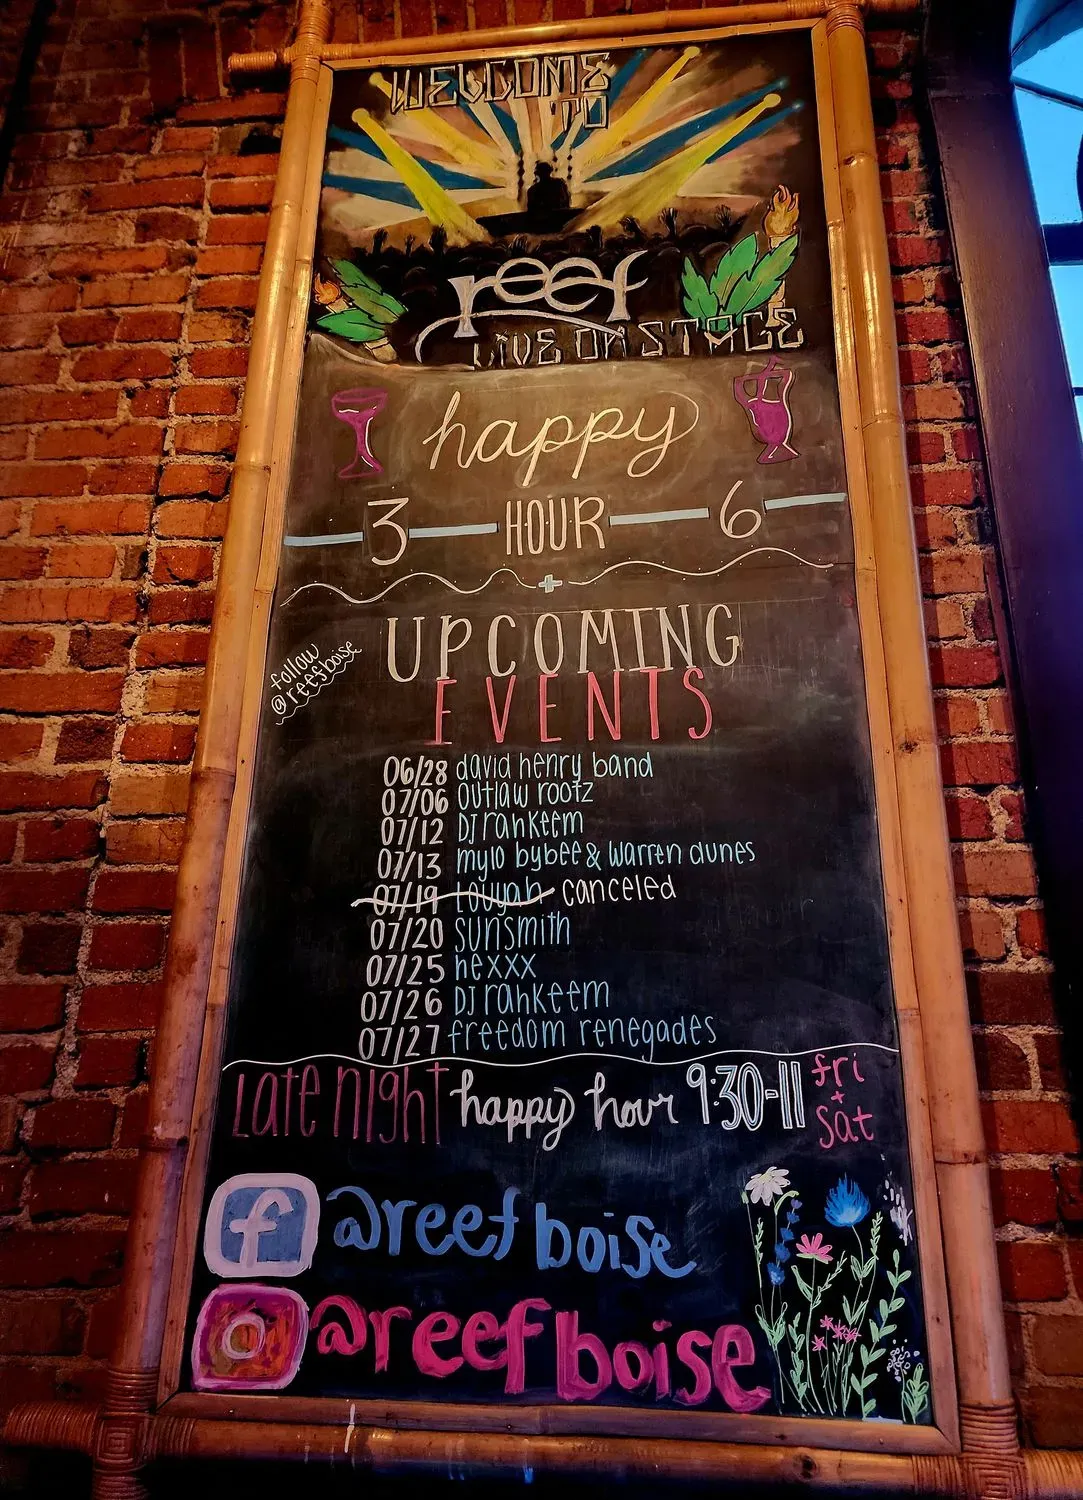 WELCOME
TO
reef
LIVE ON STAGE
happy
3 HOUR 6
+
UPCOMING
EVENTS
follow
@reefboise
06/28 david henry band
07/06 outlaw rootz
07/12 DJ rahkeem
07/13 mylo bybee & warren dunes
07/19 Louyah canceled
07/20 sunsmith
07/25 hexxx
07/26 DJ rahkeem
07/27 freedom renegades
Late night happy hour 9:30-11 fri
+
sat
f @reef boise
@reef boise